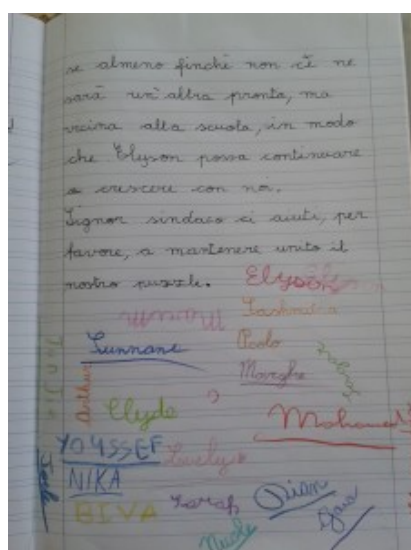 se almeno finchè non c'è ne
sarà un'altra pronta, ma
vicina alla scuola, in modo
che Elyson possa continuare
a crescere con noi.
Signor sindaco ci aiuti, per
favore, a mantenere unito il
nostro puzzle.
Elyson
Paolo
Sunnane
Marghe
Arthur
Clyde
Mohamed
YOUSSEF
NIKA
BIVA
Sarah
Rian